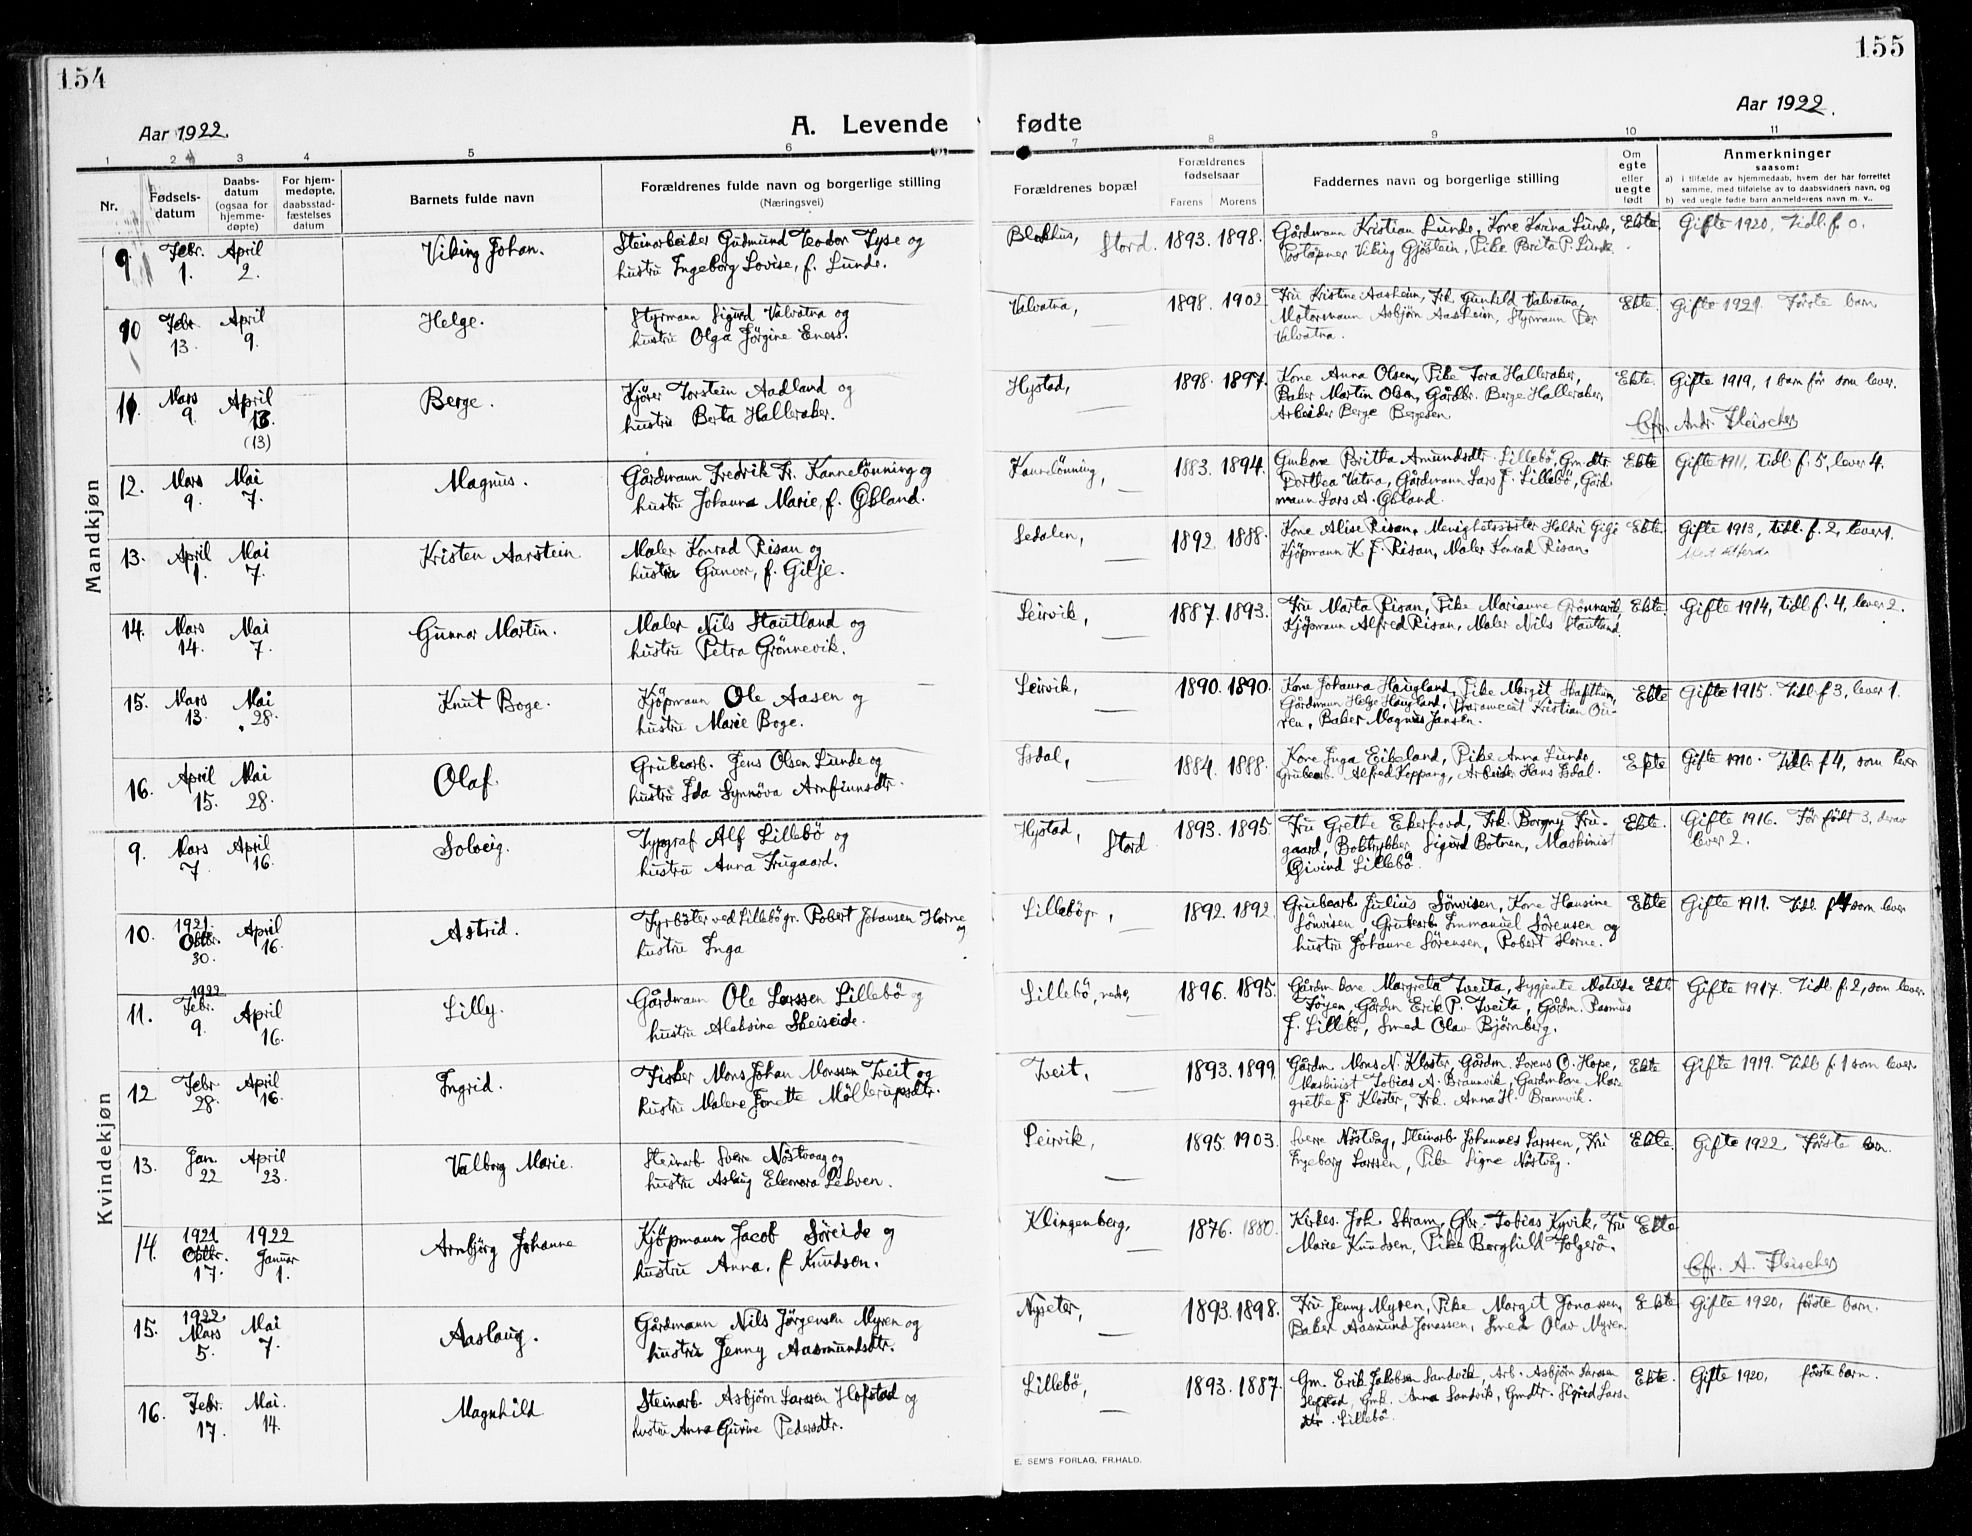 154
155
Aar 1922.
A. Levende fødte
Aar 1922.
1 2 3 4 5 6 7 8 9 10 11
Nr.
Fødsels-
datum
Daabs-
datum
(ogsaa for
hjemme-
døpte)
For hjem-
medøpte,
daabsstad-
fæstelses
datum
Barnets fulde navn
Forældrenes fulde navn og borgerlige stilling
(Næringsvei)
Forældrenes bopæl
Forældrenes
fødselsaar
Farens Morens
Faddernes navn og borgerlige stilling
Om
egte
eller
uegte
født
Anmerkninger
saasom:
a) i tilfælde av hjemmedaab, hvem der har forrettet
samme, med tilføielse av to daabsvidners navn, og
b) ved uegte fødte barn anmelderens navn m. v..
Mandkjøn
9. Febr. 1. April 2. Viking Johan.
Steinarbeider Gudmund Teodor Tyse og
hustru Ingeborg Lovise, f. Lunde.
Blokhus, Stord. 1893. 1898.
Gårdmann Kristian Lunde, Kone Karina Lunde,
Poståpner Viking Gjöstein, Pike Brita P. Lunde.
Ekte. Gifte 1920, Tidl. f. 0.
10 Febr. 13. April 9. Helge.
Styrmann Sigurd Valvatna og
hustru Olga Jörgine Enes.
Valvatna, — 1898. 1902
Fru Kristine Aasheim, Frk. Gunhild Valvatna,
Motormann Asbjørn Aasheim, Styrmann Per
Valvatna.
Ekte. Gifte 1921. Förste barn
11. Mars 9. April 13. (13) Berge.
Kjörer Torstein Aadland og
hustru Berta Halleraker.
Hystad, — 1898. 1897.
Kone Anna Olsen, Pike Tora Halleraker,
Baker Martin Olsen, Gårdbr. Berge Halleraker,
Arbeider Berge Bergesen.
Ekte. Gifte 1919, 1 barn för som lever.
Cfr. Andr. Fleischer
12. Mars 9. Mai 7. Magnus.
Gårdmann Fredrik Fr. Kannelönning og
hustru Johanna Marie, f. Økland.
Kannelönning, — 1883. 1894.
Gmkone Britha Amundsdtr. Lillebö, Gm.dtr.
Dorthea Vatna, Gårdmann Lars J. Lillebö, Gård
mann Lars A. Økland.
Ekte Gifte 1911, tidl f. 5, lever 4.
13. April 1. Mai 7. Kristen Aarstein
Maler Konrad Risan og
hustru Gunvor, f. Gilje.
— 1892 1888.
Kone Alise Risan, Menighetssöster Haldri Gilje
Kjöpmann K. J. Risan, Maler Konrad Risan.
Ekte Gifte 1913, tidl. f. 2, lever 1.
14. Mars 14. Mai 7. Gunnar Martin.
Maler Nils Stautland og
hustru Petra Grönnevik.
Leirvik, — 1887. 1893.
Fru Marta Risan, Pike Marianne Grönnevik,
Kjöpmann Alfred Risan, Maler Nils Stautland.
Ekte. Gifte 1914, tidl f. 4, lever 2.
15. Mars 13. Mai 28. Knut Boge.
Kjöpmann Ole Aasen og
hustru Marie Boge.
Leirvik, 1890. 1890.
Kone Johanna Haugland, Pike Margit Hafthun,
Gårdmann Helge Haugland, Kristian
Baker Magnus Jansen.
Ekte Gifte 1915. Tidl. f 3, lever 1.
16. April 15. Mai 28. Olaf.
Grubearb. Jens Olsen Lunde og
hustru Ida Synnöva Arnfinnsdtr.
Isdal, — 1884. 1888.
Kone Inga Eikeland, Pike Anna Lunde,
Grubearb. Alfred Koppang, Arbeider Hans Isdal.
Ekte Gifte 1910. Tidl. f 4, som lever
Kvindekjøn
9. Mars 7. April 16. Solveig.
Typograf Alf Lillebö og
hustru Anna Frugaard.
Hystad, Stord 1893. 1895
Fru Grethe Ekerhovd, Frk. Borgny Fru-
gaard, Boktrykker Sigurd Botnen, Maskinist
Øivind Lillebö.
Ekte. Gifte 1916. För födt 3, derav
lever 2.
10. 1921. Oktbr. 30. April 16. Astrid.
Fyrböter ved Lillebö gr. Robert Johansen Horne
og
hustru Inga
Lillebö gr, — 1892. 1892.
Grubearb. Julius Sönvisen, Kone Hansine
Sönvisen, Grubearb. Immanuel Sörensen og
hustru Johanne Sörensen, Robert Horne.
Ekte Gifte 1911. Tidl. f 4 som lever
11. 1922 Febr. 9. April 16. Lilly.
Gårdmann Ole Larssen Lillebö og
hustru Aleksine Skeiseide.
Lillebö, nedre, — 1896. 1895.
Gårdm.kone Margreta Tveita, Sygjente Matilde
Töyen, Gårdm Erik P. Tveita, Gårdm. Rasmus
J. Lillebö, Smed Olav Bjørnberg.
Ekte Gifte 1917. Tidl. f. 2, som lever.
12 Febr. 28. April 16. Ingrid.
Fisker Mons Johan Monssen Tveit og
hustru Malene Jonette Möllerupsdtr.
Tveit, — 1893. 1899.
Gårdm. Mons N. Kloster, Gårdm. Lorens O. Hope,
Maskinist Tobias A. Brannvik, Gardmkone Mar-
grethe J. Kloster, Frk. Anna H. Brannvik.
Ekte Gifte 1919. Tidl f. 1 som lever
13. Jan. 22 April 23. Valborg Marie.
Steinarb Sverre Nöstvaag og
hustru Aslaug Eleonora Lekven.
Leirvik, — 1895. 1903.
Sverre Nöstvåg, Steinarb Johannes Larssen, Fru
Ingeborg Larssen, Pike Signe Nöstvåg.
Ekte. Gifte 1922 Förste barn.
14. 1921 Oktbr. 17. 1922 Januar 1. Arnbjörg Johanne
Kjöpmann Jacob Søreide og
hustru Anna, f. Knudsen.
Klingenberg, — 1876. 1880.
Kirkes. Joh. Stram, Gbr. Tobias Kyvik, Fru
Marie Knudsen, Pike Borghild Folgerö.
Ekte
Cfr. A. Fleischer
15. 1922. Mars 5. Mai 7. Aaslaug.
Gårdmann Nils Jørgensen Myren og
hustru Jenny Aasmundsdtr.
Nyseter, — 1893. 1898.
Fru Jenny Myren, Pike Margit Jonassen,
Baker Aasmund Jonassen, Smed Olav Myren
Ekte Gifte 1920, förste barn.
16. Febr. 17. Mai. 14. Magnhild
Steinarb. Asbjørn Larssen Hofstad og
hustru Anna Gurine Pedersdtr.
Lillebö, — 1893. 1887.
Gm. Erik Jakobsen Sandvik, Arb. Asbjørn Larssen
Hofstad, Gmk. Anna Sandvik, Gmdtr. Sigrid Lars-
dtr. Lillebö.
Ekte. Gifte 1920, förste barn.
E. SEM'S FORLAG, FR.HALD.